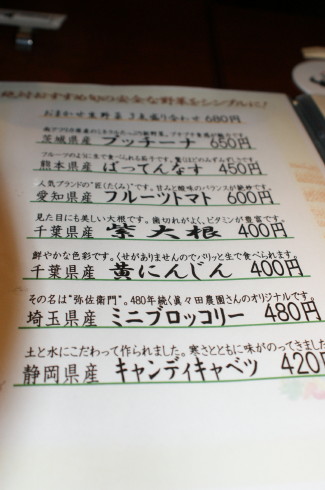 絶対おすすめ旬の安全な野菜をシンプルに！
おまかせ生野菜 3点盛り合わせ 680円
南アフリカ原産のミネラルたっぷり新野菜。プチプチ食感が魅力です
茨城県産 プッチーナ 650円
フルーツのように生で食べられる茄子です。驚くほどのみずみずしさです
熊本県産 ばってんなす 450円
人気ブランドの"匠(たくみ)"です。甘みと酸味のバランスが絶妙です
愛知県産 フルーツトマト 600円
見た目にも美しい大根です。歯切れがよく、ビタミンが豊富です。
千葉県産 紫大根 400円
鮮やかな色彩です。くせがありませんのでパリッと生で食べられます。
千葉県産 黄にんじん 400円
その名は"弥佐衛門"。480年続く眞々田農園さんのオリジナルです。
埼玉県産 ミニブロッコリー 480円
土と水にこだわって作られました。寒さとともに味がのってきました
静岡県産 キャンディキャベツ 420